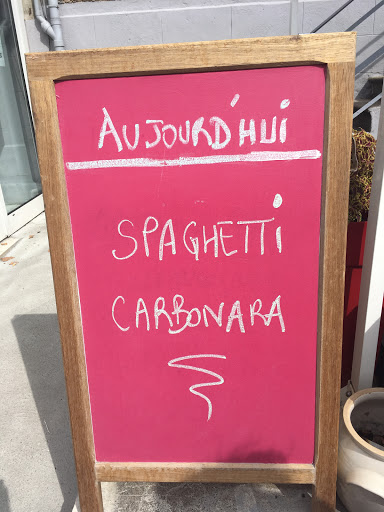 AUJOURD'HUi
SPAGHETTi
CARBONARA